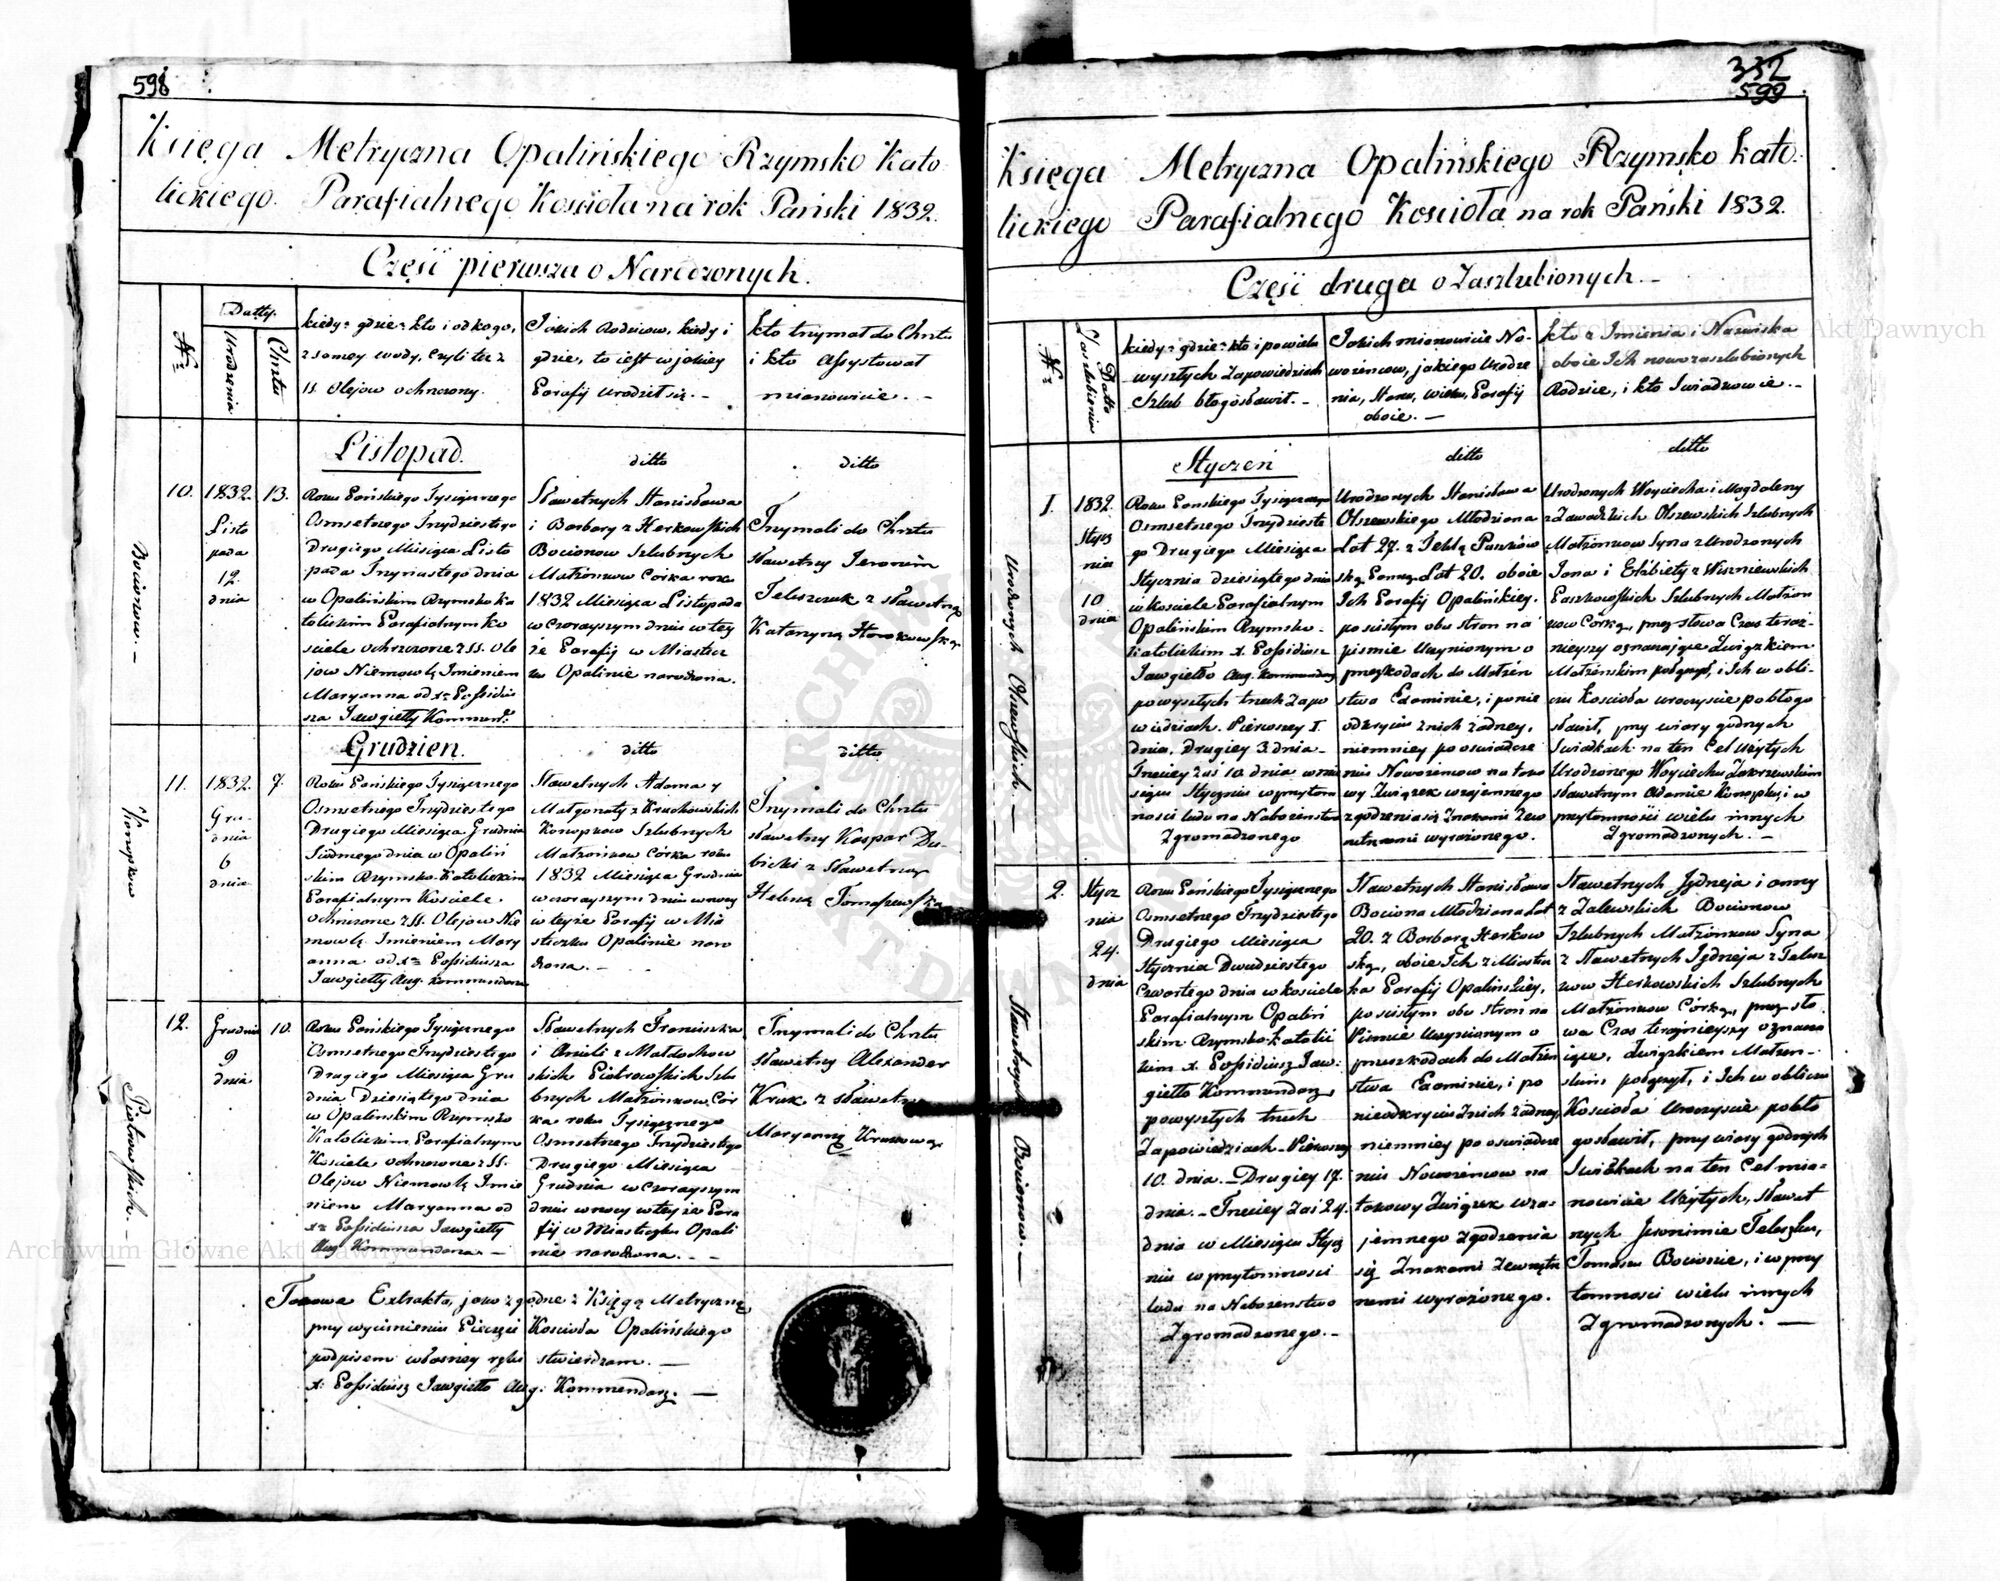 598
Księga Metryczna Opalińskiego Rzymsko Kato
lickiego Parafialnego Kościoła na rok Pański 1832.
Część pierwsza o Narodzonych.
Nr
Datty.
Urodzenia
Chrztu
kiedy, gdzie, kto i od kogo,
z samey wody, czyli też z
SS. Olejow ochrzczony.
Jakich Rodzicow, kiedy i
gdzie, to iest w jakiey
Parafij urodził się. –
kto trzymał do Chrztu
i kto Assystował
mianowicie. –
Listopad.
ditto
ditto
Bocionow. –
10.
1832.
Listo
pada
12.
dnia
13.
Roku Pańskiego Tysiącznego
Osmsetnego Trzydziestego
Drugiego Miesiąca Listo
pada Trzynastego dnia
w Opalińskim Rzymsko Ka
tolickim Parafialnym Ko
sciele ochrzczone z SS. Ole
jow Niemowlę Imieniem
Maryanna od X: Possidiu
sza Jawgiełły Kommend:
Sławetnych Stanisława
i Barbary z Herkowskich
Bocionow Szlubnych
Małżonkow Corka roku
1832 Miesiąca Listopada
wczorayszym dniu w tey
że Parafij w Miastecz
ku Opalinie narodzona.
Trzymali do Chrztu
sławetny Jeronim
Teleszczuk z sławetną
Katarzyną
Grudzien.
ditto
ditto
Konopkow
11.
1832.
Gru-
dnia
6
dnia
7.
Roku Pańskiego Tysiącznego
Osmsetnego Trzydziestego
Drugiego Miesiąca Grudnia
Siodmego dnia w Opaliń
skim Rzymsko-Katolickim
Parafialnym Kosciele
ochrzczone z SS. Olejow Nie
mowlę Imieniem Mary
anna od X: Possidiusza
Jawgiełły Aug. Kommendarza
Sławetnych Adama y
Małgorzaty z Kruchowskich
Konopkow Szlubnych
Małżonkow Corka roku
1832 Miesiąca Grudnia
wczorayszym dniu w nocy
w teyże Parafij w Mia
steczku Opalinie naro
dzona. –
Trzymali do Chrztu
sławetny Kasper Du
bicki z sławetną
Heleną Tomaszewską
Piotrowskich. –
12.
Grudnia
9
dnia
10.
Roku Pańskiego Tysiącznego
Osmsetnego Trzydziestego
Drugiego Miesiąca Gru
dnia Dziesiątego dnia
w Opalinskim Rzymsko
Katolickim Parafialnym
Kosciele ochrzczone z SS.
Olejow Niemowlę Imie
niem Maryanna od
X: Possidiusza Jawgiełły
Aug Kommendarza. –
Sławetnych Franciszka
i Anieli z Małdochow
skich Piotrowskich Szlu
bnych Małżonkow Cor
ka roku Tysiącznego
Osmsetnego Trzydziestego
Drugiego Miesiąca
Grudnia wczorayszym
dniu w nocy w tey że Para
fij w Miasteczku Opali
nie narodzona. – –
Trzymali do Chrztu
sławetny Alexander
Kruk z sławetną
Maryanną Krukową
Takowe Extrakta, jako zgodne z Księgą Metryczną
przy wyciśnieniu Pieczęci Kosciola Opalińskiego
podpisem własney ręki stwierdzam. –
X: Possidiusz Jawgiełło Aug: Kommendarz. –
332
599
Księga Metryczna Opalińskiego Rzymsko Kato-
lickiego Parafialnego Kościoła na rok Pański 1832.
Część druga o Zaszlubionych. –
Nr
Datta
Zaszlubienia
kiedy, gdzie, kto i po wielu
wyszłych Zapowiedziach
Szlub błogosławił. –
Jakich mianowicie No-
wożencow, jakiego urodze
nia, stanu, wieku, Parafij
oboie. –
kto z Imienia i Nazwiska
oboie Ich nowozaszlubionych
Rodzice, i kto Swiadkowie. –
Styczeń
ditto
ditto
Urodzonych Olszewskich –
1.
1832.
Stycz
nia
10
dnia
Roku Panskiego Tysiącznego
Osmsetnego Trzydzieste
go Drugiego Miesiąca
Stycznia dziesiątego dnia
w kosciele Parafialnym
Opalińskim Rzymsko-
Katolickim X. Possidiusz
Jawgiełło Aug. Kommendarz
po wyszłych trzech Zapo
wiedziach. Pierwszey 1.
dnia, Drugiey 3. dnia –
Trzeciey zaś 10. dnia w mie
siącu Styczniu w przytom
nosci ludu na Nabożenstwo
Zgromadzonego
Urodzonych Stanisława
Olszewskiego Młodziana
Lat 27. z Teklą Paszkow
ską Panną Lat 20. oboie
Ich Parafij Opalińskiey.
po scisłym obu stron na
pismie Uczynionym o
przeszkodach do Małżen
stwa Examinie, i po nie
odkryciu z nich żadney,
niemniey po oswiadcze
niu Nowożencow na tako
wy Związek wzajemnego
zgodzenia się Znakami Zew
nętrznemi wyrażonego.
Urodzonych Woyciecha i Magdaleny
z Zawadzkich Olszewskich Szlubnych
Małżonkow Syna z Urodzonych
Jana i Elżbiety z Wiszniewskich
Paszkowskich Szlubnych Małżon
kow Corką, przez słowa Czas teraz-
nieyszy oznaczające Związkiem
Małżeńskim połączył, i Ich w obli-
czu Kosciola uroczyscie pobłogo
sławił, przy wiary godnych
Swiadkach na ten Cel użytych
Urodzonego Woyciechu Zakrzewskim
sławetnym Adamie Konopku, i w
przytomnosci wielu innych
Zgromadzonych. –
Sławetnych Bocionow. –
2.
Stycz
nia
24.
dnia
Roku Pańskiego Tysiącznego
Osmsetnego Trzydziestego
Drugiego Miesiąca
Stycznia Dwudziestego
Czwartego dnia w kosciele
Parafialnym Opaliń
skim Rzymsko-Katolic
kim X. Possidiusz Jaw-
giełło Kommendarz
po wyszłych trzech
Zapowiedziach – Pierwszey
10. dnia. – Drugiey 17.
dnia. – Trzeciey Zaś 24.
dnia w Miesiącu Stycz
niu w przytomnosci
ludu na Nabożenstwo
Zgromadzonego. –
Sławetnych Stanisława
Bociona Młodziana Lat
20. z Barbarą Herkow
ską, oboie Ich z Miastecz
ka Parafij Opalińskiey,
po scisłym obu stron na
Pismie Uczynionym o
przeszkodach do Małżen
stwa Examinie, i po
nieodkryciu z nich żadney,
niemniey po oswiadcze
niu Nowożencow na
takowy Związek wza-
jemnego zgodzenia
się Znakami Zewnętrz
nemi wyrażonego.
Sławetnych Jędrzeja i Anny
z Zalewskich Bocionow
Szlubnych Małżonkow Syna
z Sławetnych Jędrzeja z Telesz
kow Herkowskich Szlubnych
Małżonkow Corką, przez sło
wa Czas terażnieyszy oznacza
jące, Związkiem Małżen-
skim połączył, i Ich w obliczu
Kosciola Uroczyscie pobło
gosławił, przy wiary godnych
Swiadkach na ten Cel mia-
nowicie Użytych, sławet
nych Jeronimie Teleszku,
Tomaszu Bocionie, i w przy
tomnosci wielu innych
Zgromadzonych. –
Archiwum Główne Akt Dawnych
Archiwum Główne Akt Dawnych